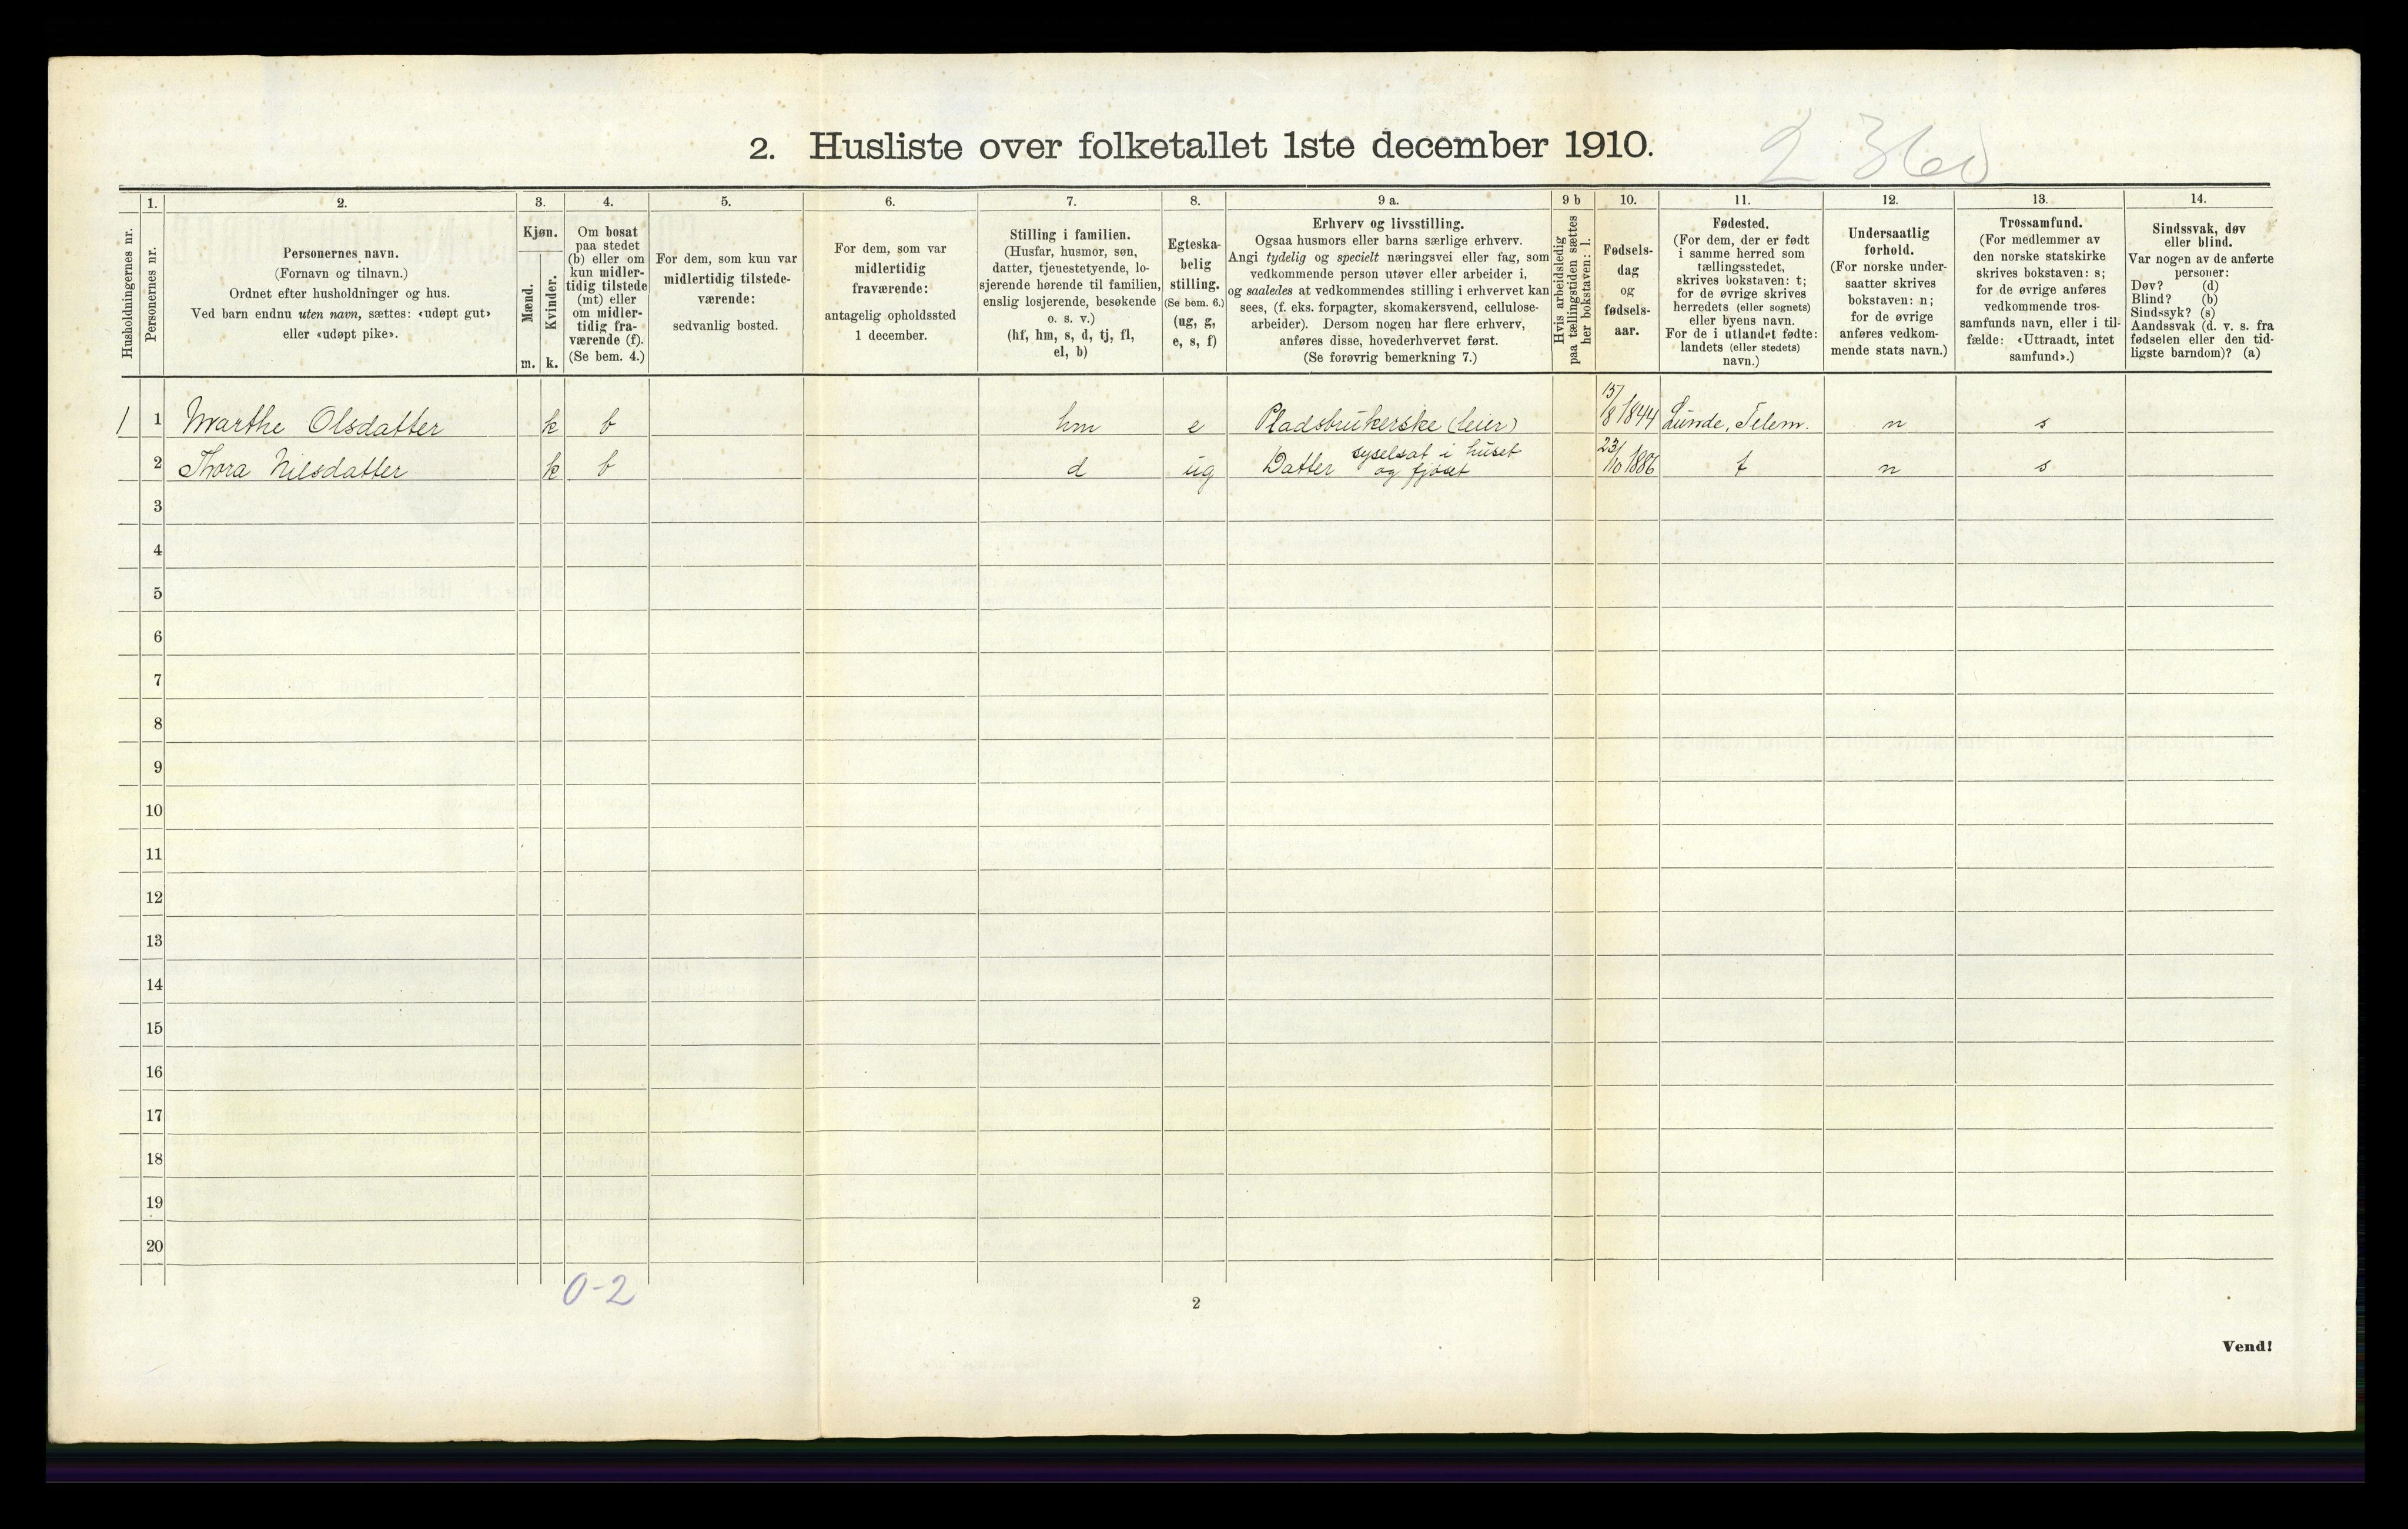 2. Husliste over folketallet 1ste december 1910.
2 360
Husholdningernes nr.
1.
Personernes nr.
2.
Personernes navn.
(Fornavn og tilnavn.)
Ordnet efter husholdninger og hus.
Ved barn endnu uten navn, sættes: «udøpt gut»
eller «udøpt pike».
3.
Kjøn.
Mænd.
Kvinder.
m. k.
4.
Om bosat
paa stedet
(b) eller om
kun midler-
tidig tilstede
(mt) eller
om midler-
tidig fra-
værende (f).
(Se bem. 4.)
5.
For dem, som kun var
midlertidig tilstede-
værende:
sedvanlig bosted.
6.
For dem, som var
midlertidig
fraværende:
antagelig opholdssted
1 december.
7.
Stilling i familien.
(Husfar, husmor, søn,
datter, tjenestetyende, lo-
sjerende hørende til familien,
enslig losjerende, besøkende
o. s. v.)
(hf, hm, s, d, tj, fl,
el, b)
8.
Egteska-
belig
stilling.
(Se bem. 6.)
(ug, g,
e, s, f)
9 a.
Erhverv og livsstilling.
Ogsaa husmors eller barns særlige erhverv.
Angi tydelig og specielt næringsvei eller fag, som
vedkommende person utøver eller arbeider i,
og saaledes at vedkommendes stilling i erhvervet kan
sees, (f. eks. forpagter, skomakersvend, cellulose-
arbeider). Dersom nogen har flere erhverv,
anføres disse, hovederhvervet først.
(Se forøvrig bemerkning 7.)
9 b
Hvis arbeidsledig
paa tællingstiden sættes
her bokstaven: l.
10.
Fødsels-
dag
og
fødsels-
aar.
11.
Fødested.
(For dem, der er født
i samme herred som
tællingsstedet,
skrives bokstaven: t;
for de øvrige skrives
herredets (eller sognets)
eller byens navn.
For de i utlandet fødte:
landets (eller stedets)
navn.)
12.
Undersaatlig
forhold.
(For norske under-
saatter skrives
bokstaven: n;
for de øvrige
anføres vedkom-
mende stats navn.)
13.
Trossamfund.
(For medlemmer av
den norske statskirke
skrives bokstaven: s;
for de øvrige anføres
vedkommende tros-
samfunds navn, eller i til-
fælde: «Uttraadt, intet
samfund».)
14.
Sindssvak, døv
eller blind.
Var nogen av de anførte
personer:
Døv? (d)
Blind? (b)
Sindssyk? (s)
Aandssvak (d. v. s. fra
fødselen eller den tid-
ligste barndom)? (a)
1 1 Marthe Olsdatter k b hm e Pladsbrukerske (leier) 15/8 1844 Lunde, Telem. n s
2 Thora Nilsdatter k b d ug Datter syselsat i huset og fjøset 23/10 1886 t n s
3
4
5
6
7
8
9
10
11
12
13
14
15
16
17
18
19
20
0-2
2
Vend!